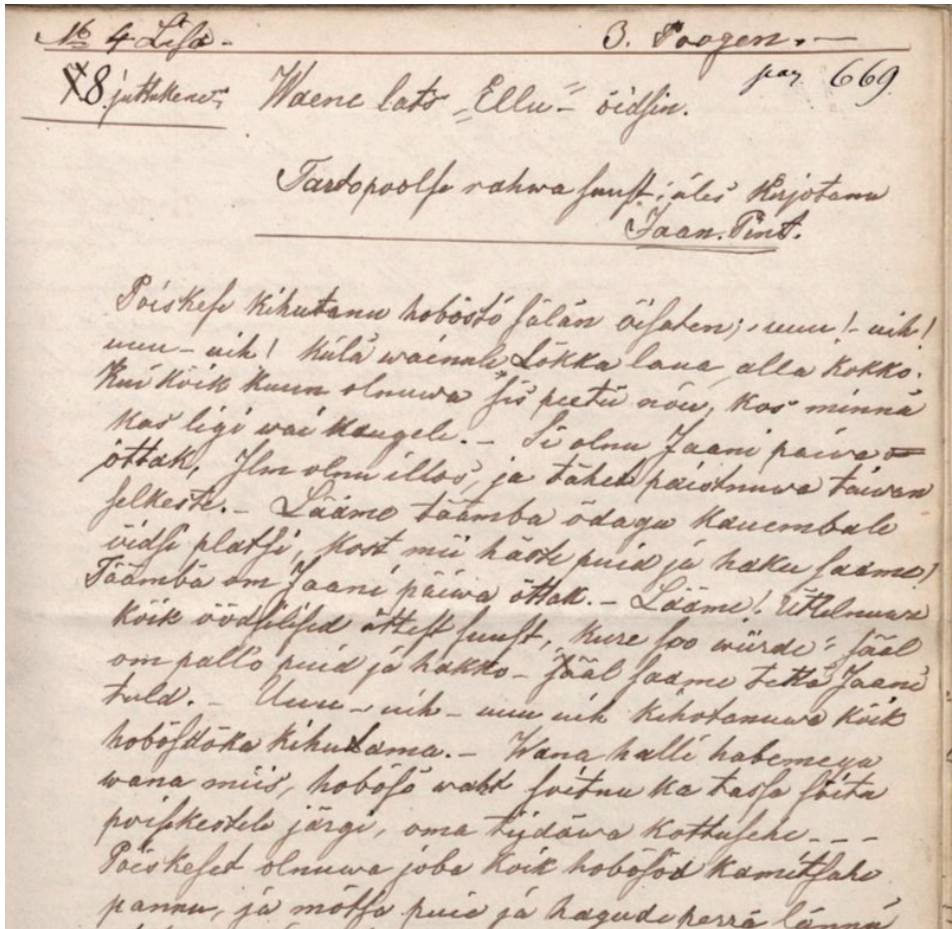 № 4 Lisa. 3. Poogen.
pag 669
8 juttukene. Waene lats „Ellu“ öidsin.
Tartopoolse rahwa suust üles kirjotanu
Jaan. Pint.
Poiskese kihutanu hobösto sälän öisaten; uuu! - uih!
uuu - uih! külä wainule Lökka laua alla kokko.
Kui kõik kuun olnuwa sis peetu nõu, kos minnä
kas ligi wai kaugele. - Si olnu Jaani päiwa
õttak, Ilm olnu illos, ja tähed paistnuwa taiwan
selkeste. - Lääme täämba õdagu kauembale
öidse platsi, kost mii häste puid ja haku saame!
Täämbä om Jaani päiwa õttak. - Lääme! Ütelnuwa
kõik öödsilised üttest suust, kure soo wiirde; sääl
om pallo puid ja hakko - Sääl saame tettä Jaani
tuld. - Uuu - uih - uuu uih kihotanuwa kõik
hobösdöka kihutama. - Wana halli habemega
wana miis, hobösö waht sõitnu ka tassa sõita
poisekestele järgi, oma tijdäwa kottusehe - - -
Poiskeset olnuwa joba kõik hobösöd kamitsahe
pannu, ja mõtsa puid ja hagude perrä lännü